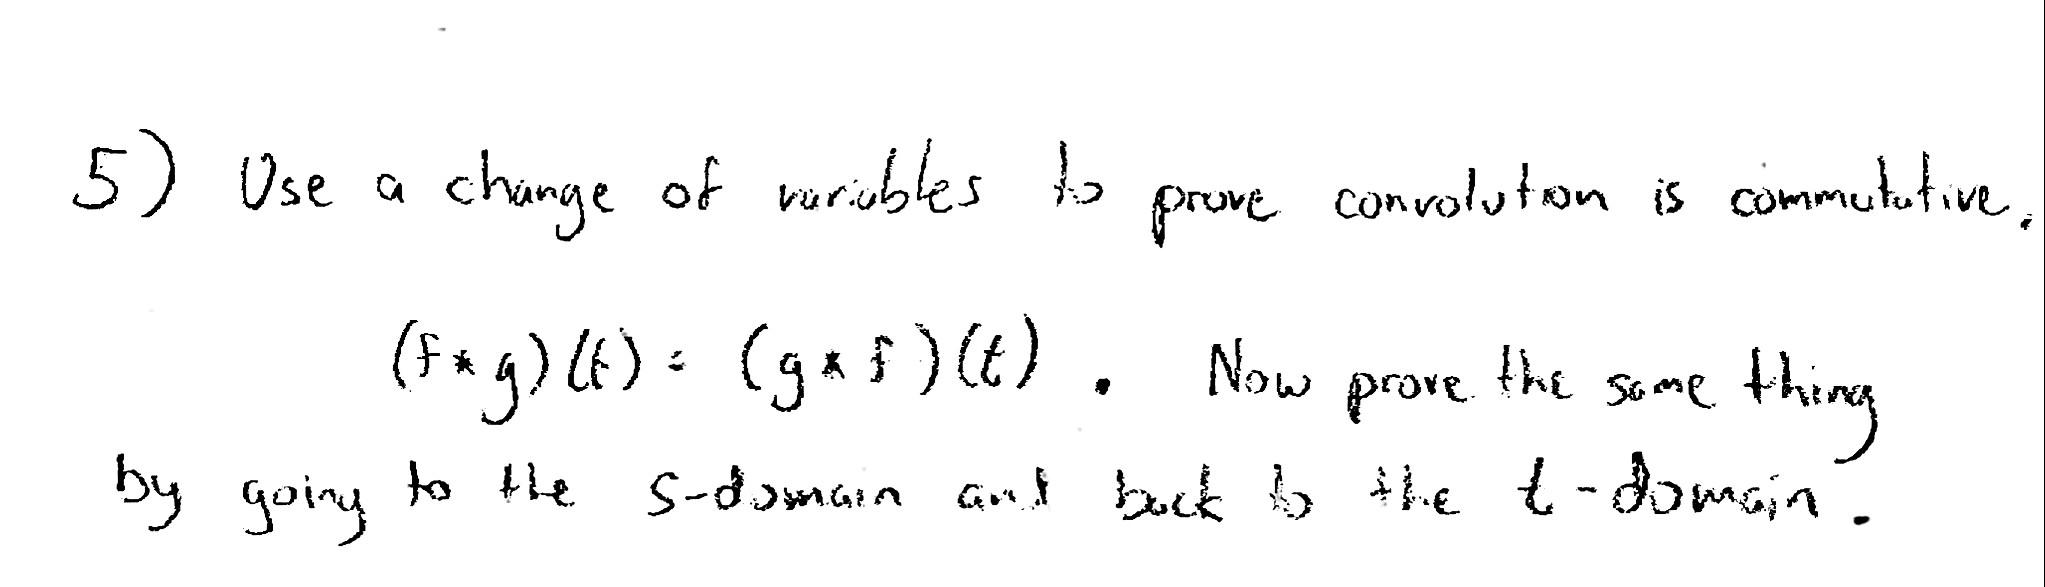 5) Use a change of variables to prove convolution is commutative.
(f * g)(t) = (g * f)(t). Now prove the same thing
by going to the s-domain and back to the t-domain.